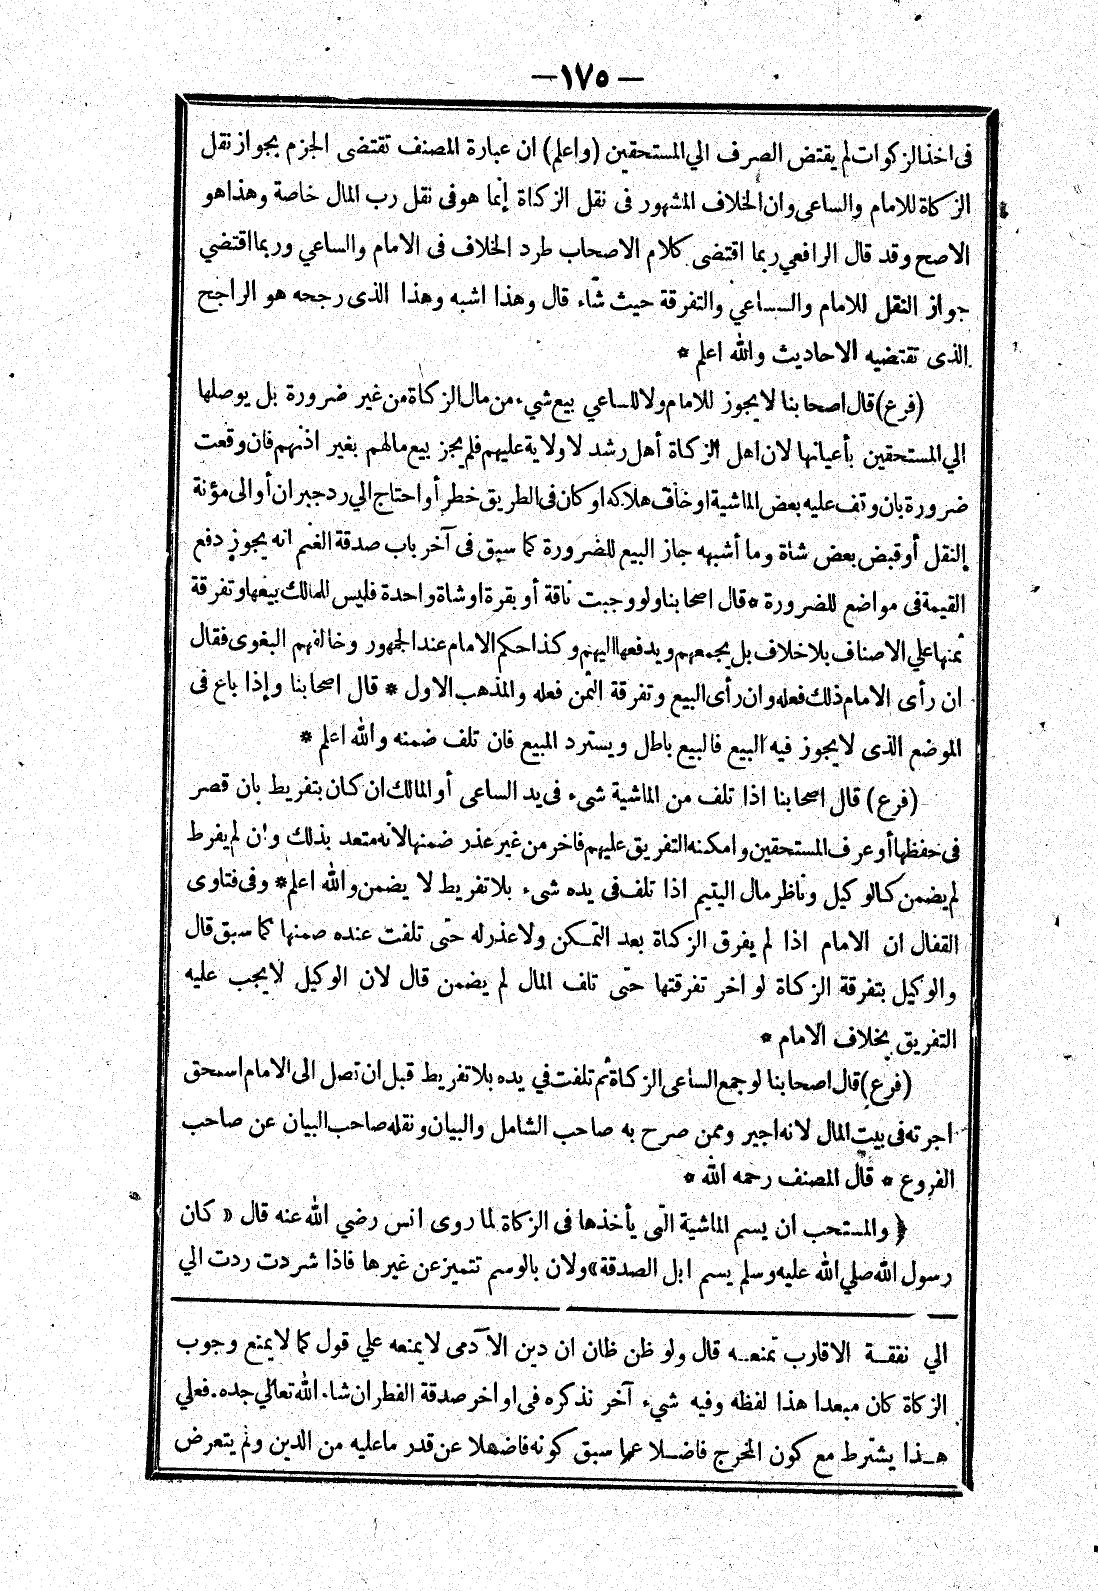 —١٧٥—
فى اخذ الزكوات لم يقتض الصرف الي المستحقين (واعلم) ان عبارة المصنف تقتضى الجزم بجواز نقل
الزكاة للامام والساعى وان الخلاف المشهور فى نقل الزكاة إنما هو فى نقل رب المال خاصة وهذا هو
الاصح وقد قال الرافعي ربما اقتضى كلام الاصحاب طرد الخلاف فى الامام والساعي وربما اقتضي
جواز النقل للامام والساعي والتفرقة حيث شاء قال وهذا اشبه وهذا الذى رجحه هو الراجح
الذى تقتضيه الاحاديث والله اعلم *
(فرع) قال اصحابنا لا يجوز للامام ولا للساعي بيع شيء من مال الزكاة من غير ضرورة بل يوصلها
الي المستحقين بأعيانها لان اهل الزكاة أهل رشد لا ولاية عليهم فلم يجز بيع مالهم بغير اذنهم فان وقعت
ضرورة بان وقف عليه بعض الماشية او خاف هلاكه او كان فى الطريق خطر أو احتاج الي رد جبران أو الى مؤنة
النقل أو قبض بعض شاة وما أشبهه جاز البيع للضرورة كما سبق فى آخر باب صدقة الغنم انه يجوز دفع
القيمة فى مواضع للضرورة * قال اصحابنا ولو وجبت ناقة أو بقرة او شاة واحدة فليس للمالك بيعها وتفرقة
ثمنها علي الاصناف بلا خلاف بل يجمعهم ويدفعها اليهم وكذا حكم الامام عند الجمهور وخالفهم البغوى فقال
ان رأى الامام ذلك فعله وان رأى البيع وتفرقة الثمن فعله والمذهب الاول * قال اصحابنا وإذا باع فى
الموضع الذى لا يجوز فيه البيع فالبيع باطل ويسترد المبيع فان تلف ضمنه والله اعلم *
(فرع) قال اصحابنا اذا تلف من الماشية شىء فى يد الساعى أو المالك ان كان بتفريط بان قصر
فى حفظها أو عرف المستحقين وامكنه التفريق عليهم فاخر من غير عذر ضمنها لانه متعد بذلك وان لم يفرط
لم يضمن كالوكيل وناظر مال اليتيم اذا تلف فى يده شىء بلا تفريط لا يضمن والله اعلم * وفى فتاوى
القفال ان الامام اذا لم يفرق الزكاة بعد التمكن ولا عذر له حتى تلفت عنده ضمنها كما سبق قال
والوكيل بتفرقة الزكاة لو اخر تفرقتها حتى تلف المال لم يضمن قال لان الوكيل لا يجب عليه
التفريق بخلاف الامام *
(فرع) قال اصحابنا لو جمع الساعى الزكاة ثم تلفت في يده بلا تفريط قبل ان تصل الى الامام استحق
اجرته فى بيت المال لانه اجير وممن صرح به صاحب الشامل والبيان ونقله صاحب البيان عن صاحب
الفروع * قال المصنف رحمه الله *
﴿ والمستحب ان يسم الماشية التى يأخذها فى الزكاة لما روى انس رضي الله عنه قال « كان
رسول الله صلي الله عليه وسلم يسم ابل الصدقة» ولان بالوسم تتميز عن غيرها فاذا شردت ردت الي
الي نفقة الاقارب تمنعه قال ولو ظن ظان ان دين الآدمى لا يمنعه علي قول كما لا يمنع وجوب
الزكاة كان مبعدا هذا لفظه وفيه شيء آخر نذكره فى اواخر صدقة الفطر ان شاء الله تعالي جده. فعلي
هذا يشترط مع كون المخرج فاضلا عما سبق كونه فاضلا عن قدر ما عليه من الدين ولم يتعرض